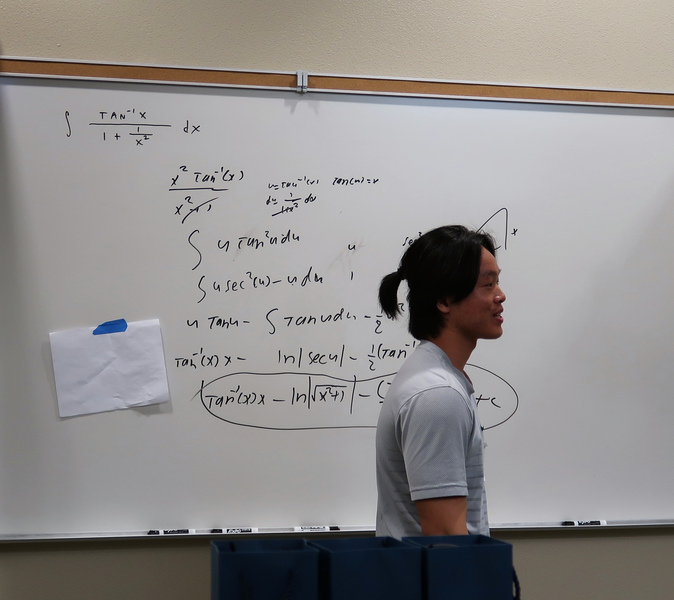 ∫ TAN⁻¹X / (1 + 1/x²) dx
x² Tan⁻¹(x) / x²+1
u=Tan⁻¹(x) Tan(u)=x
du= 1/1+x² dx
∫ u Tan²u du u sec² x
∫ u sec²(u) - u du 1
u Tanu - ∫ Tanu du - ½ ²
Tan⁻¹(x) x - ln|secu| - ½(Tan⁻¹
Tan⁻¹(x) x - ln|√x²+1| - ( +c